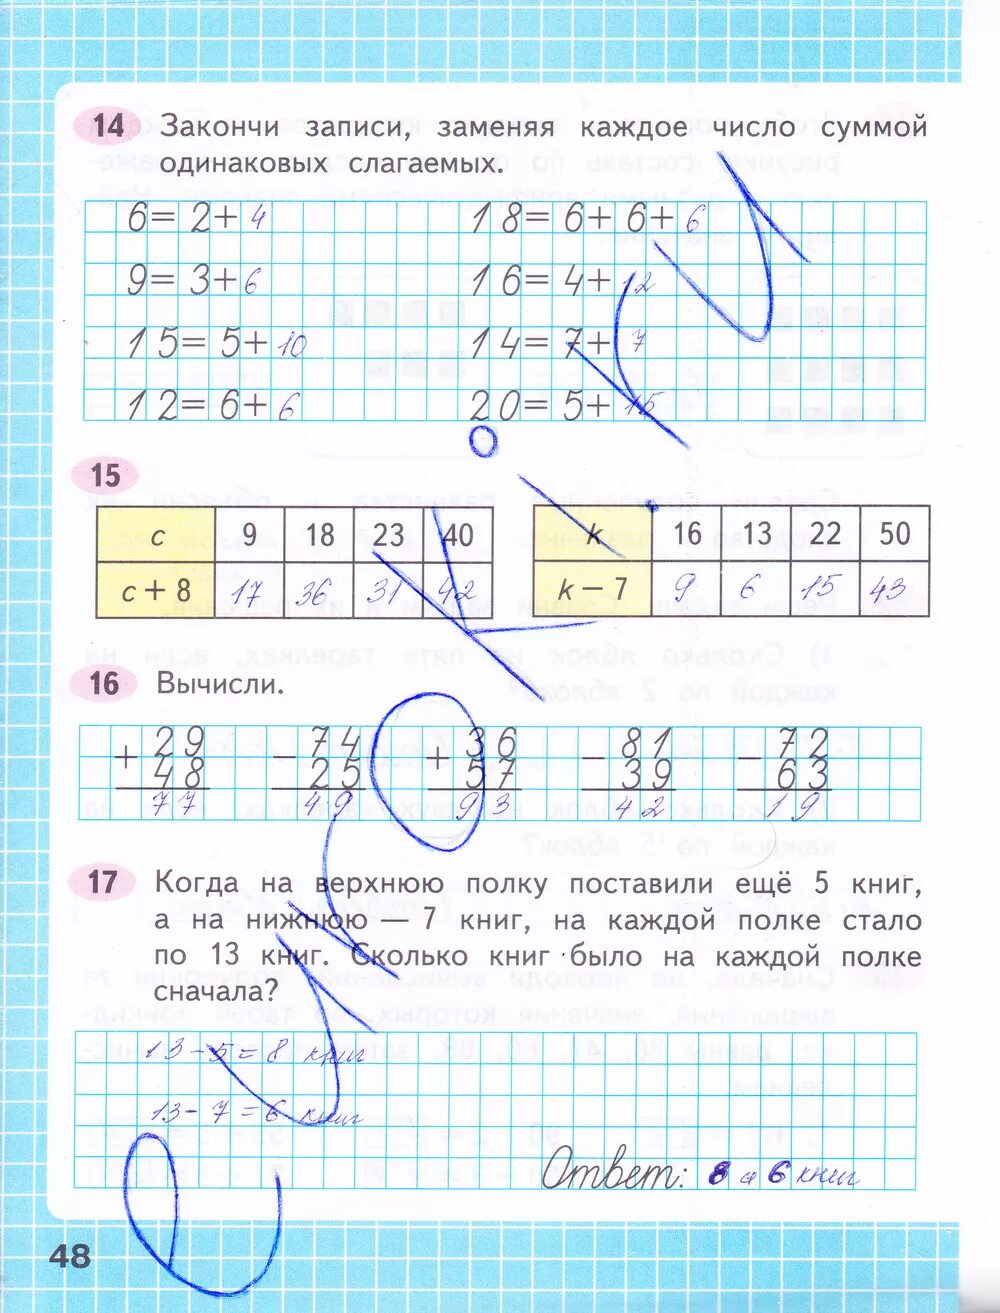 14 Закончи записи, заменяя каждое число суммой
одинаковых слагаемых.
6 = 2 + 4 18 = 6 + 6 + 6
9 = 3 + 6 16 = 4 + 12
15 = 5 + 10 14 = 7 + 7
12 = 6 + 6 20 = 5 + 15
15
c 9 18 23 40 k 16 13 22 50
c + 8 17 36 31 42 k − 7 9 6 15 43
16 Вычисли.
+ 29 − 74 + 36 − 81 − 72
48 25 57 39 63
77 49 93 42 19
17 Когда на верхнюю полку поставили ещё 5 книг,
а на нижнюю — 7 книг, на каждой полке стало
по 13 книг. Сколько книг было на каждой полке
сначала?
13 − 5 = 8 книг
13 − 7 = 6 книг
Ответ: 8 и 6 книг
48